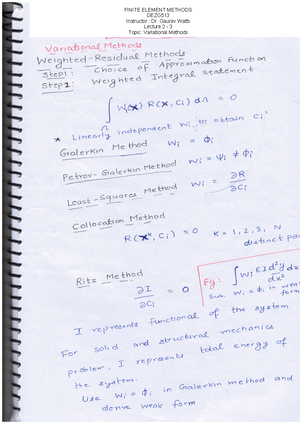 FINITE ELEMENT METHODS
DEZG513
Instructor : Dr. Gaurav Watts
Lecture 2 - 3
Topic: Variational Methods
Variational Methods
Weighted-Residual Methods
Step1: Choice of Approximation Function
Step2: Weighted Integral Statement
∫_Ω Wi(X) R(X, Ci) dΩ = 0
* Linearly independent Wi to obtain Ci
Galerkin Method Wi = ϕi
Petrov-Galerkin Method Wi = Ψi ≠ ϕi
Least-Squares Method Wi = ∂R/∂Ci
Collocation Method
R(Xᴷ, Ci) = 0 K = 1, 2, 3, N
distinct po
Ritz Method
∂I/∂Ci = 0
Eg: ∫ Wi EI d²y/dx² dx
Sub Wi = ϕi in weak
form
I represents functional of the system
For solid and structural mechanics
problem, I represents total energy of
the system.
Use Wi = ϕi in Galerkin method and
derive weak form